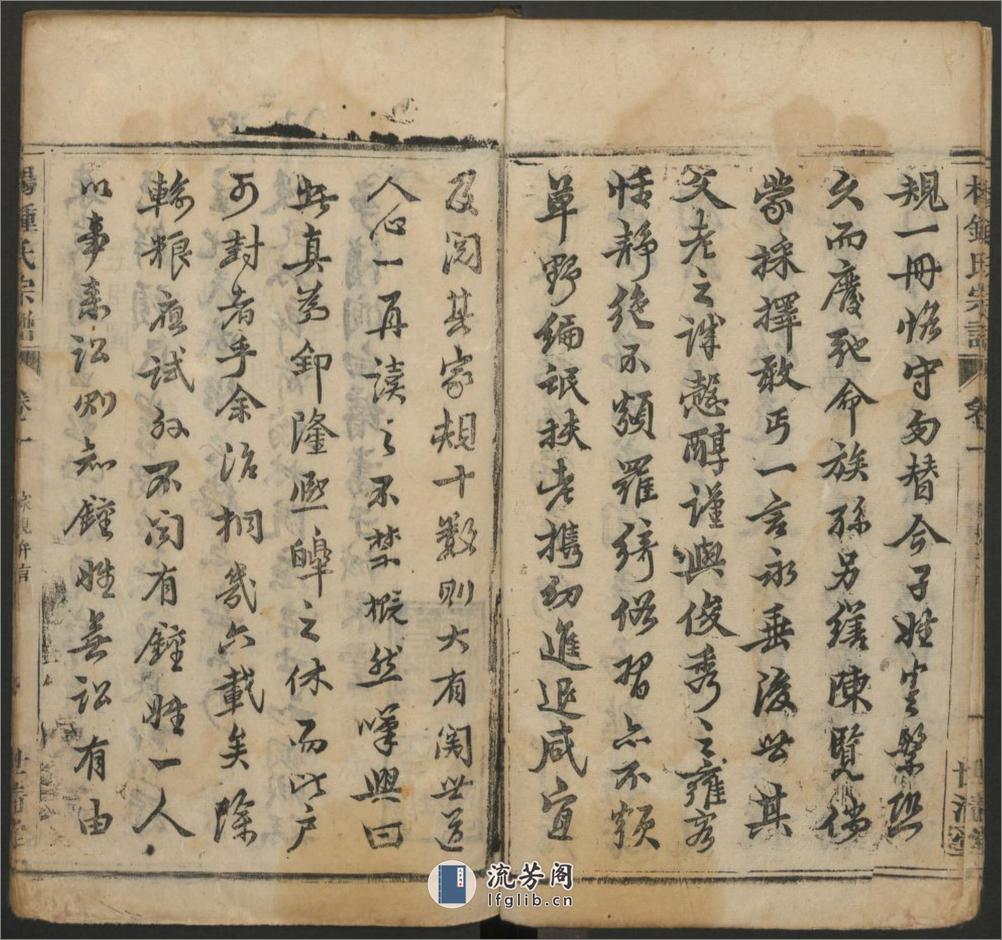 規一冊恪守勿替今子姓寔繁恐
久而廢弛命族孫另繕陳覽倘
蒙採擇敢丐一言永垂後世其
父老之誠慤醇謹與俊秀之雍容
恬靜絕不類羅紟俗習亦不類
草野編氓扶老携幼進退咸宜
及閱其家規十數則大有関世道
人心一再讀之不禁慨然嘆興曰
此真為卸隆熙皥之休而比戶
可封者乎余治桐幾六載矣除
輸糧應試外不聞有鍾姓一人
以事素訟則知鍾姓無訟有由
鍾氏宗譜
卷一
鍾氏宗譜
卷一
流芳阁
lfglib.cn